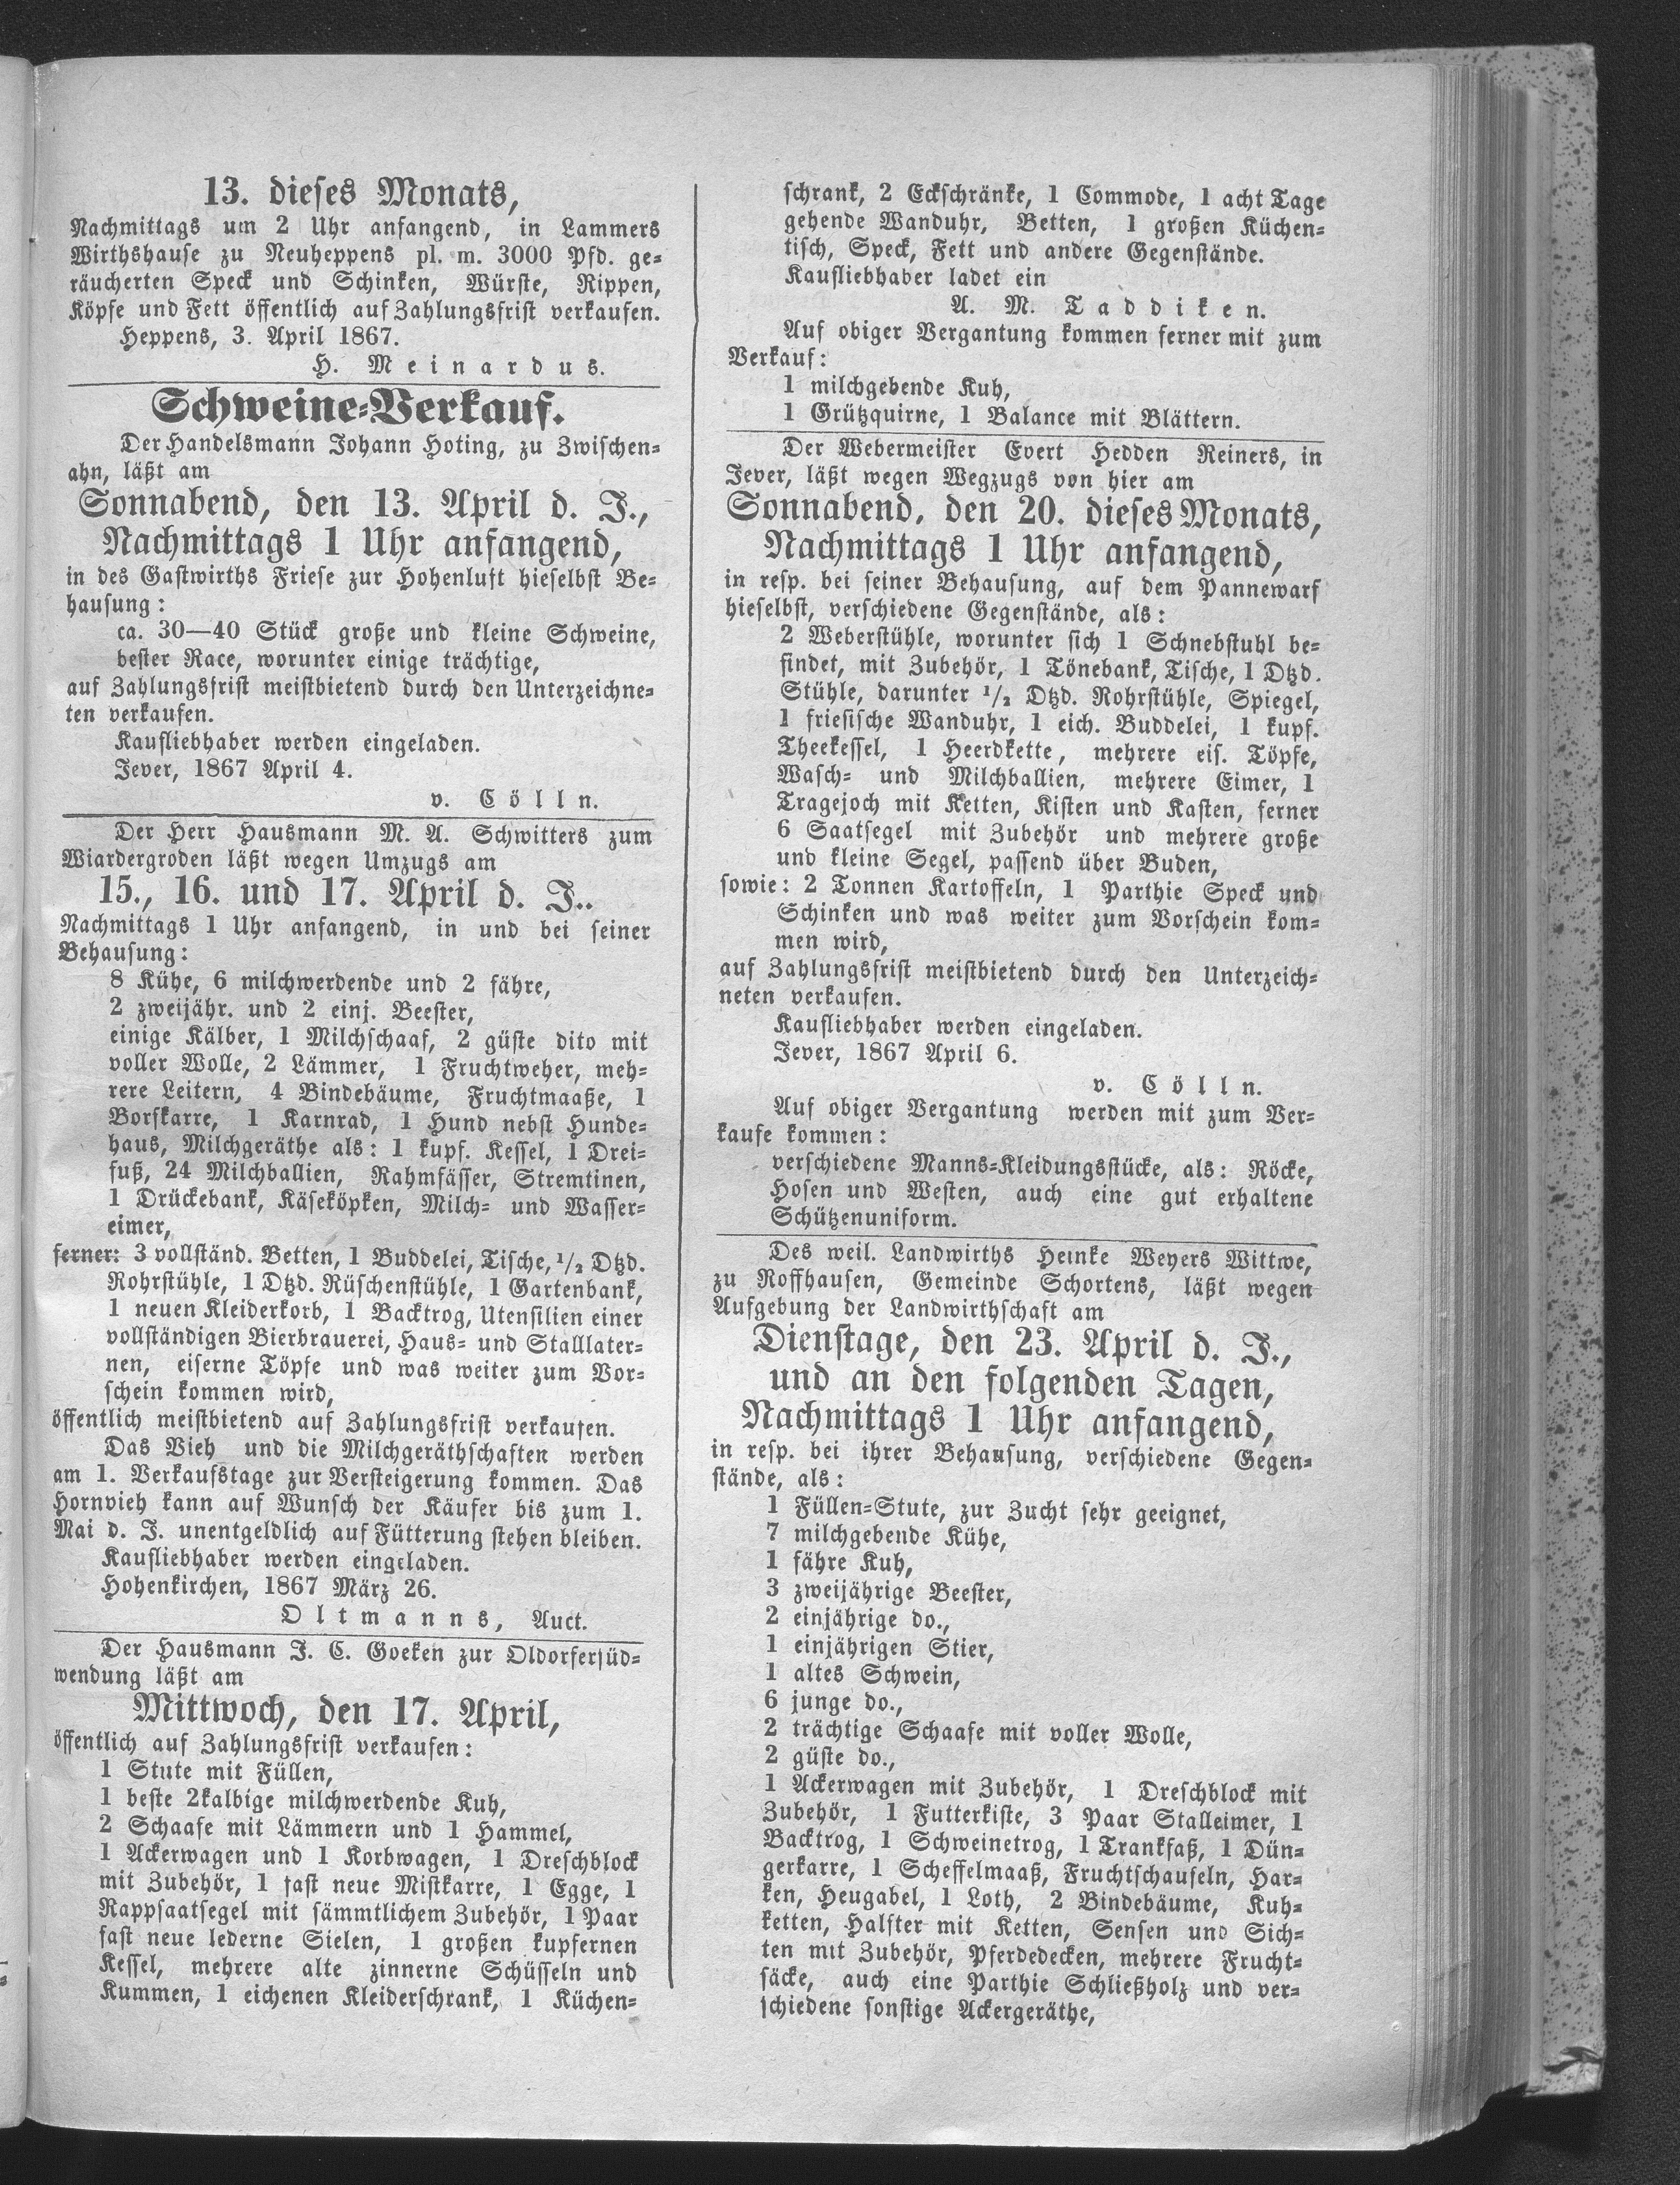 13. dieses Monats,
Nachmittags um 2 Uhr anfangend, in Lammers
Wirthshause zu Neuheppens pl. m. 3000 Pfd. ge-
räucherten Speck und Schinken, Würste, Rippen,
Köpfe und Fett öffentlich auf Zahlungsfrist verkaufen.
Heppens, 3. April 1867.
H. Meinardus.
Schweine-Verkauf.
Der Handelsmann Johann Hoting, zu Zwischen-
ahn, läßt am
Sonnabend, den 13. April d. J.,
Nachmittags 1 Uhr anfangend,
in des Gastwirths Friese zur Hohenluft hieselbst Be-
hausung:
ca. 30—40 Stück große und kleine Schweine,
bester Race, worunter einige trächtige,
auf Zahlungsfrist meistbietend durch den Unterzeichne-
ten verkaufen.
Kaufliebhaber werden eingeladen.
Jever, 1867 April 4.
v. Cölln.
Der Herr Hausmann M. A. Schwitters zum
Wiardergroden läßt wegen Umzugs am
15., 16. und 17. April d. J..
Nachmittags 1 Uhr anfangend, in und bei seiner
Behausung:
8 Kühe, 6 milchwerdende und 2 fähre,
2 zweijähr. und 2 einj. Beester,
einige Kälber, 1 Milchschaaf, 2 güste dito mit
voller Wolle, 2 Lämmer, 1 Fruchtweher, meh-
rere Leitern, 4 Bindebäume, Fruchtmaaße, 1
Borfkarre, 1 Karnrad, 1 Hund nebst Hunde-
haus, Milchgeräthe als: 1 kupf. Kessel, 1 Drei-
fuß, 24 Milchballien, Rahmfässer, Stremtinen,
1 Drückebank, Käseköpken, Milch- und Wasser-
eimer,
ferner: 3 vollständ. Betten, 1 Buddelei, Tische, 1/2 Dtzd.
Rohrstühle, 1 Dtzd. Rüschenstühle, 1 Gartenbank,
1 neuen Kleiderkorb, 1 Backtrog, Utensilien einer
vollständigen Bierbrauerei, Haus- und Stalllater-
nen, eiserne Töpfe und was weiter zum Vor-
schein kommen wird,
öffentlich meistbietend auf Zahlungsfrist verkaufen.
Das Vieh und die Milchgeräthschaften werden
am 1. Verkaufstage zur Versteigerung kommen. Das
Hornvieh kann auf Wunsch der Käufer bis zum 1.
Mai d. J. unentgeldlich auf Fütterung stehen bleiben.
Kaufliebhaber werden eingeladen.
Hohenkirchen, 1867 März 26.
Oltmanns, Auct.
Der Hausmann J. C. Goeken zur Oldorfersüd-
wendung läßt am
Mittwoch, den 17. April,
öffentlich auf Zahlungsfrist verkaufen:
1 Stute mit Füllen,
1 beste 2kalbige milchwerdende Kuh,
2 Schaafe mit Lämmern und 1 Hammel,
1 Ackerwagen und 1 Korbwagen, 1 Dreschblock
mit Zubehör, 1 fast neue Mistkarre, 1 Egge, 1
Rappsaatsegel mit sämmtlichem Zubehör, 1 Paar
fast neue lederne Sielen, 1 großen kupfernen
Kessel, mehrere alte zinnerne Schüsseln und
Kummen, 1 eichenen Kleiderschrank, 1 Küchen-
schrank, 2 Eckschränke, 1 Commode, 1 acht Tage
gehende Wanduhr, Betten, 1 großen Küchen-
tisch, Speck, Fett und andere Gegenstände.
Kaufliebhaber ladet ein
A. M. Taddiken.
Auf obiger Vergantung kommen ferner mit zum
Verkauf:
1 milchgebende Kuh,
1 Grützquirne, 1 Balance mit Blättern.
Der Webermeister Evert Hedden Reiners, in
Jever, läßt wegen Wegzugs von hier am
Sonnabend, den 20. dieses Monats,
Nachmittags 1 Uhr anfangend,
in resp. bei seiner Behausung, auf dem Pannewarf
hieselbst, verschiedene Gegenstände, als:
2 Weberstühle, worunter sich 1 Schnebstuhl be-
findet, mit Zubehör, 1 Tönebank, Tische, 1 Dtzd.
Stühle, darunter 1/2 Dtzd. Rohrstühle, Spiegel,
1 friesische Wanduhr, 1 eich. Buddelei, 1 kupf.
Theekessel, 1 Heerdkette, mehrere eis. Töpfe,
Wasch- und Milchballien, mehrere Eimer, 1
Tragejoch mit Ketten, Kisten und Kasten, ferner
6 Saatsegel mit Zubehör und mehrere große
und kleine Segel, passend über Buden,
sowie: 2 Tonnen Kartoffeln, 1 Parthie Speck und
Schinken und was weiter zum Vorschein kom-
men wird,
auf Zahlungsfrist meistbietend durch den Unterzeich-
neten verkaufen.
Kaufliebhaber werden eingeladen.
Jever, 1867 April 6.
v. Cölln.
Auf obiger Vergantung werden mit zum Ver-
kaufe kommen:
verschiedene Manns-Kleidungsstücke, als: Röcke,
Hosen und Westen, auch eine gut erhaltene
Schützenuniform.
Des weil. Landwirths Heinke Weyers Wittwe,
zu Roffhausen, Gemeinde Schortens, läßt wegen
Aufgebung der Landwirthschaft am
Dienstage, den 23. April d. J.,
und an den folgenden Tagen,
Nachmittags 1 Uhr anfangend,
in resp. bei ihrer Behausung, verschiedene Gegen-
stände, als:
1 Füllen-Stute, zur Zucht sehr geeignet,
7 milchgebende Kühe,
1 fähre Kuh,
3 zweijährige Beester,
2 einjährige do.,
1 einjährigen Stier,
1 altes Schwein,
6 junge do.,
2 trächtige Schaafe mit voller Wolle,
2 güste do.,
1 Ackerwagen mit Zubehör, 1 Dreschblock mit
Zubehör, 1 Futterkiste, 3 Paar Stalleimer, 1
Backtrog, 1 Schweinetrog, 1 Trankfaß, 1 Dün-
gerkarre, 1 Scheffelmaaß, Fruchtschaufeln, Har-
ken, Heugabel, 1 Loth, 2 Bindebäume, Kuh-
ketten, Halfter mit Ketten, Sensen und Sich-
ten mit Zubehör, Pferdedecken, mehrere Frucht-
säcke, auch eine Parthie Schließholz und ver-
schiedene sonstige Ackergeräthe,